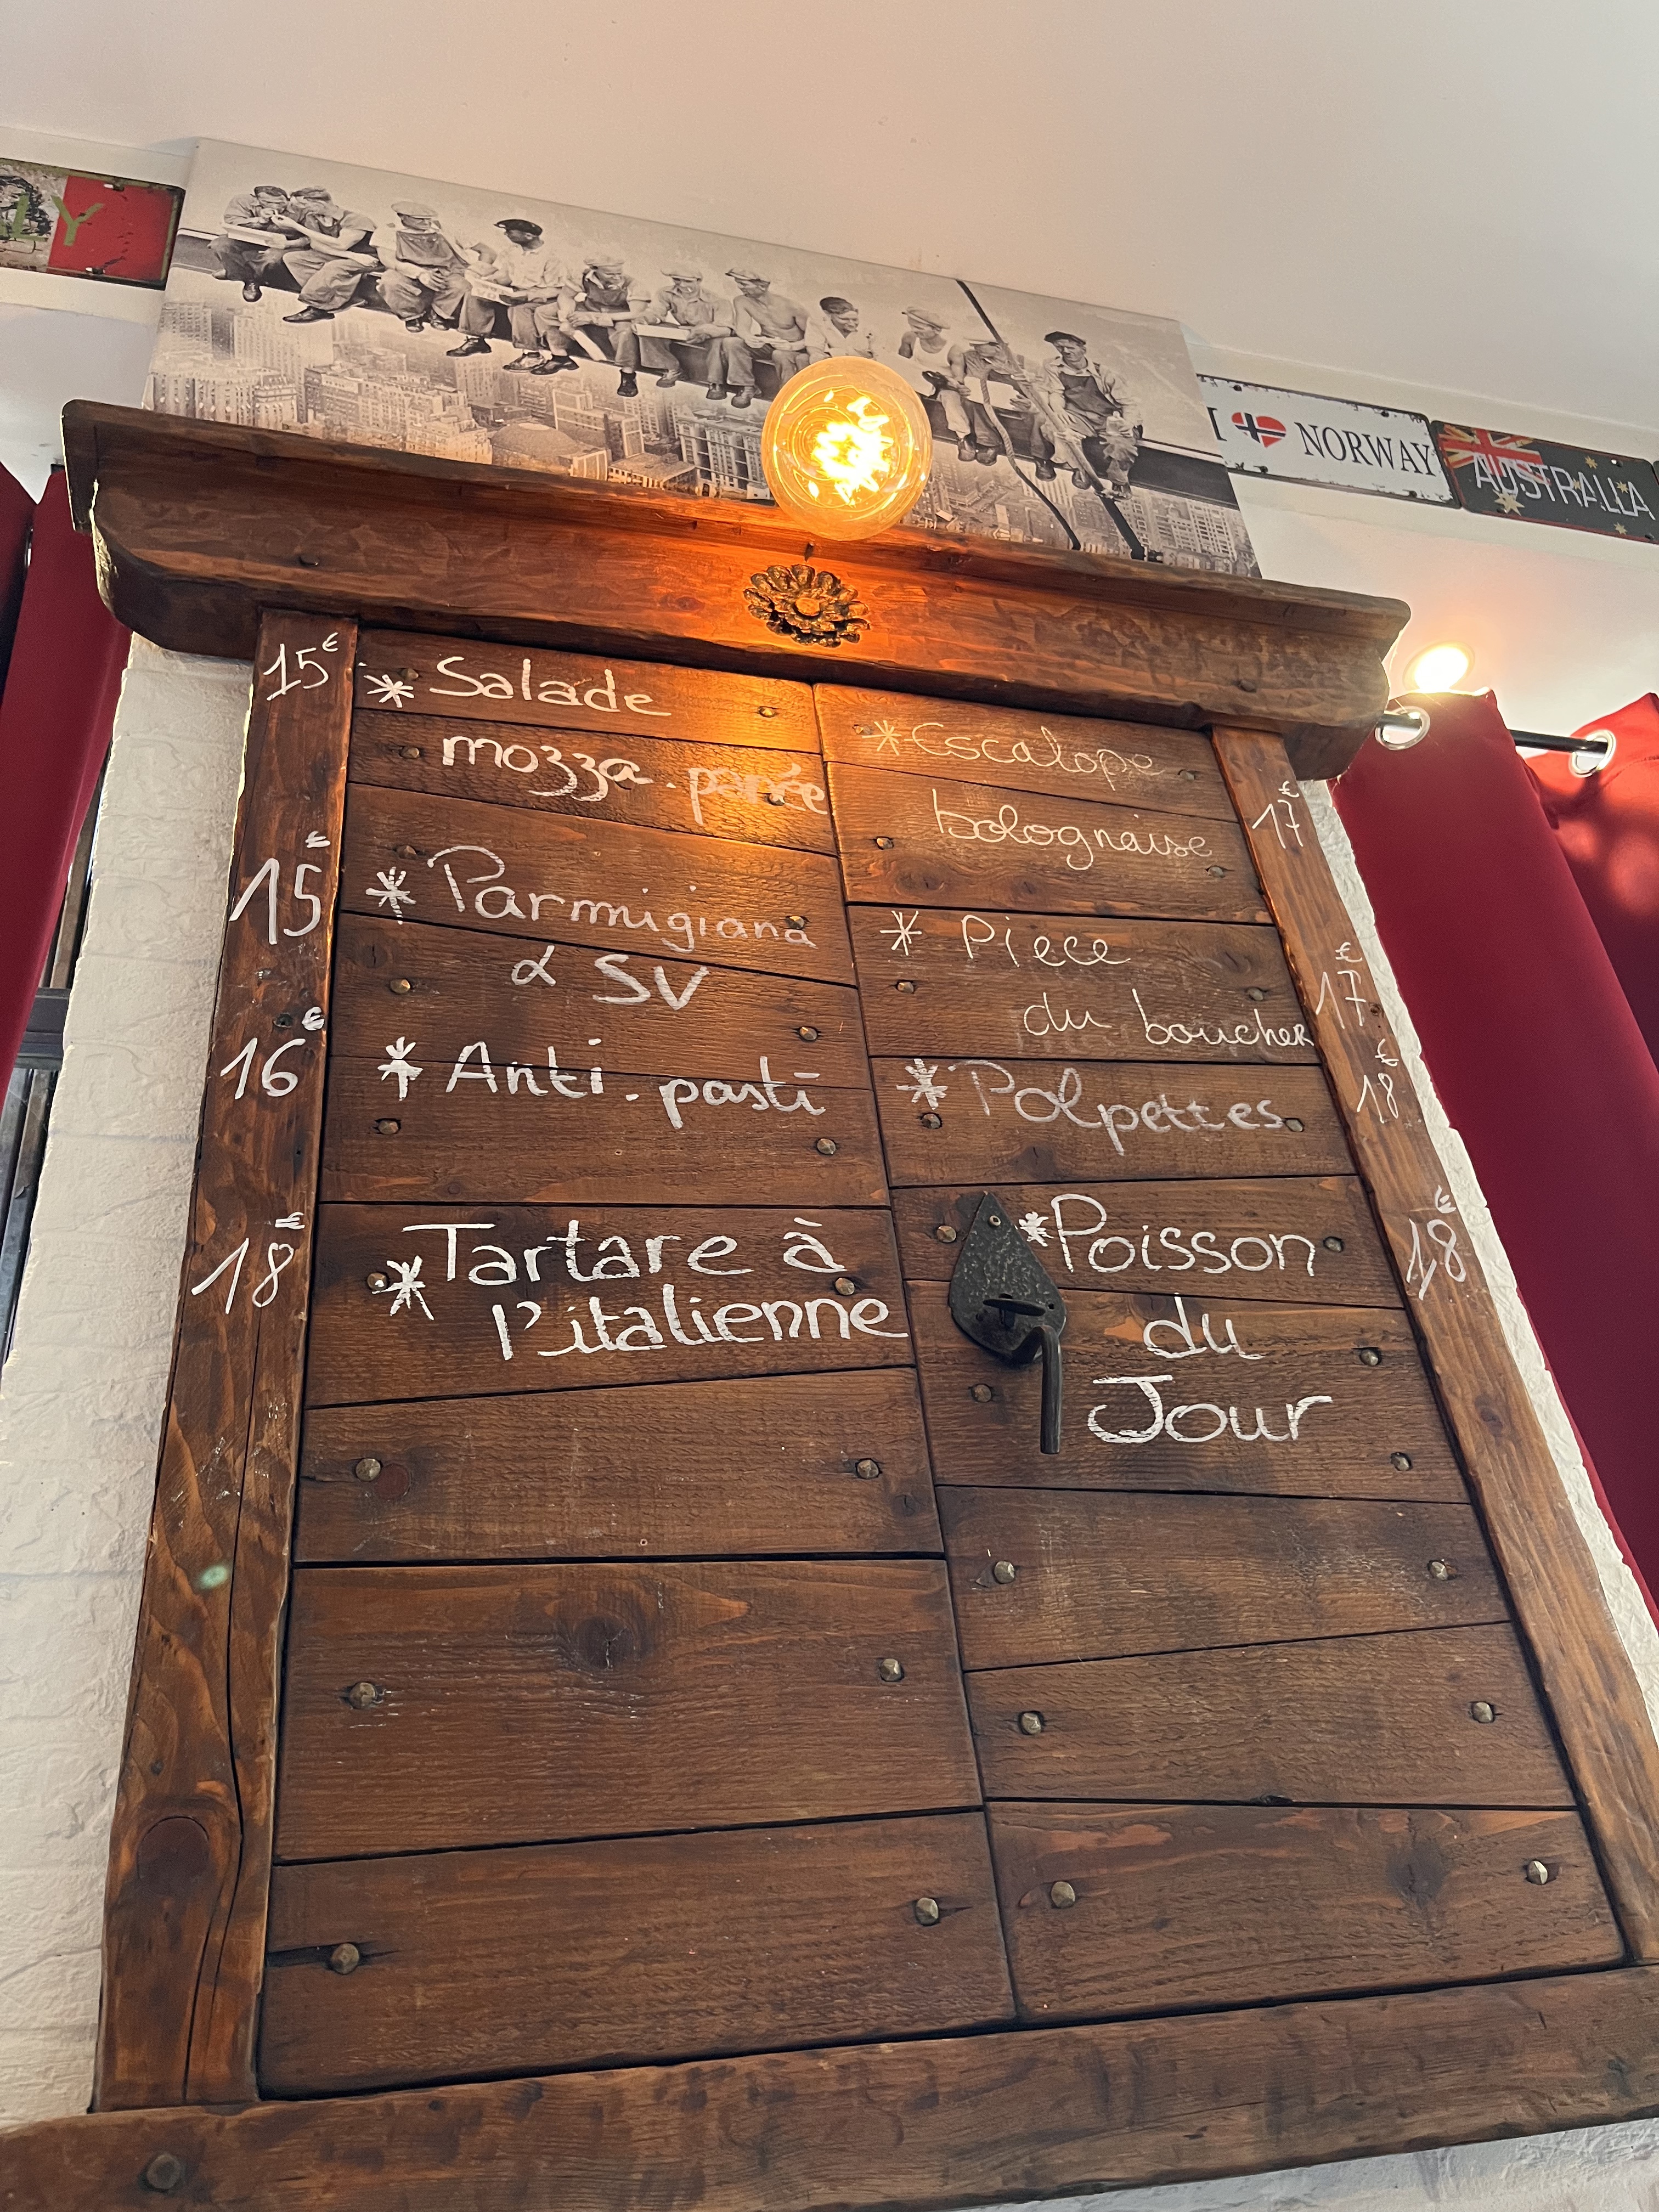 LY
I NORWAY
AUSTRALIA
15€ * Salade
mozza. panée
15€ * Parmigiana
& SV
16€ * Anti. pasti
18€ * Tartare à
l'italienne
* Escalope
bolognaise 17€
* Piece
du boucher 17€
* Polpettes 18€
* Poisson 18€
du
Jour